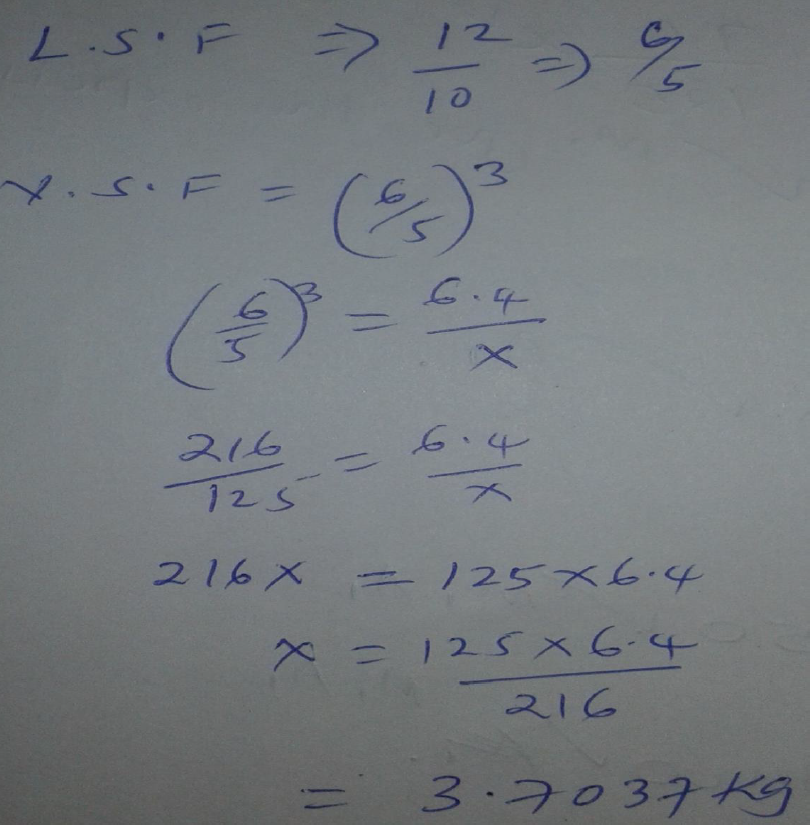 L.S.F ⇒ 12/10 ⇒ 6/5
V.S.F = (6/5)³
(6/5)³ = 6.4/x
216/125 = 6.4/x
216x = 125×6.4
x = 125×6.4/216
= 3.7037 Kg